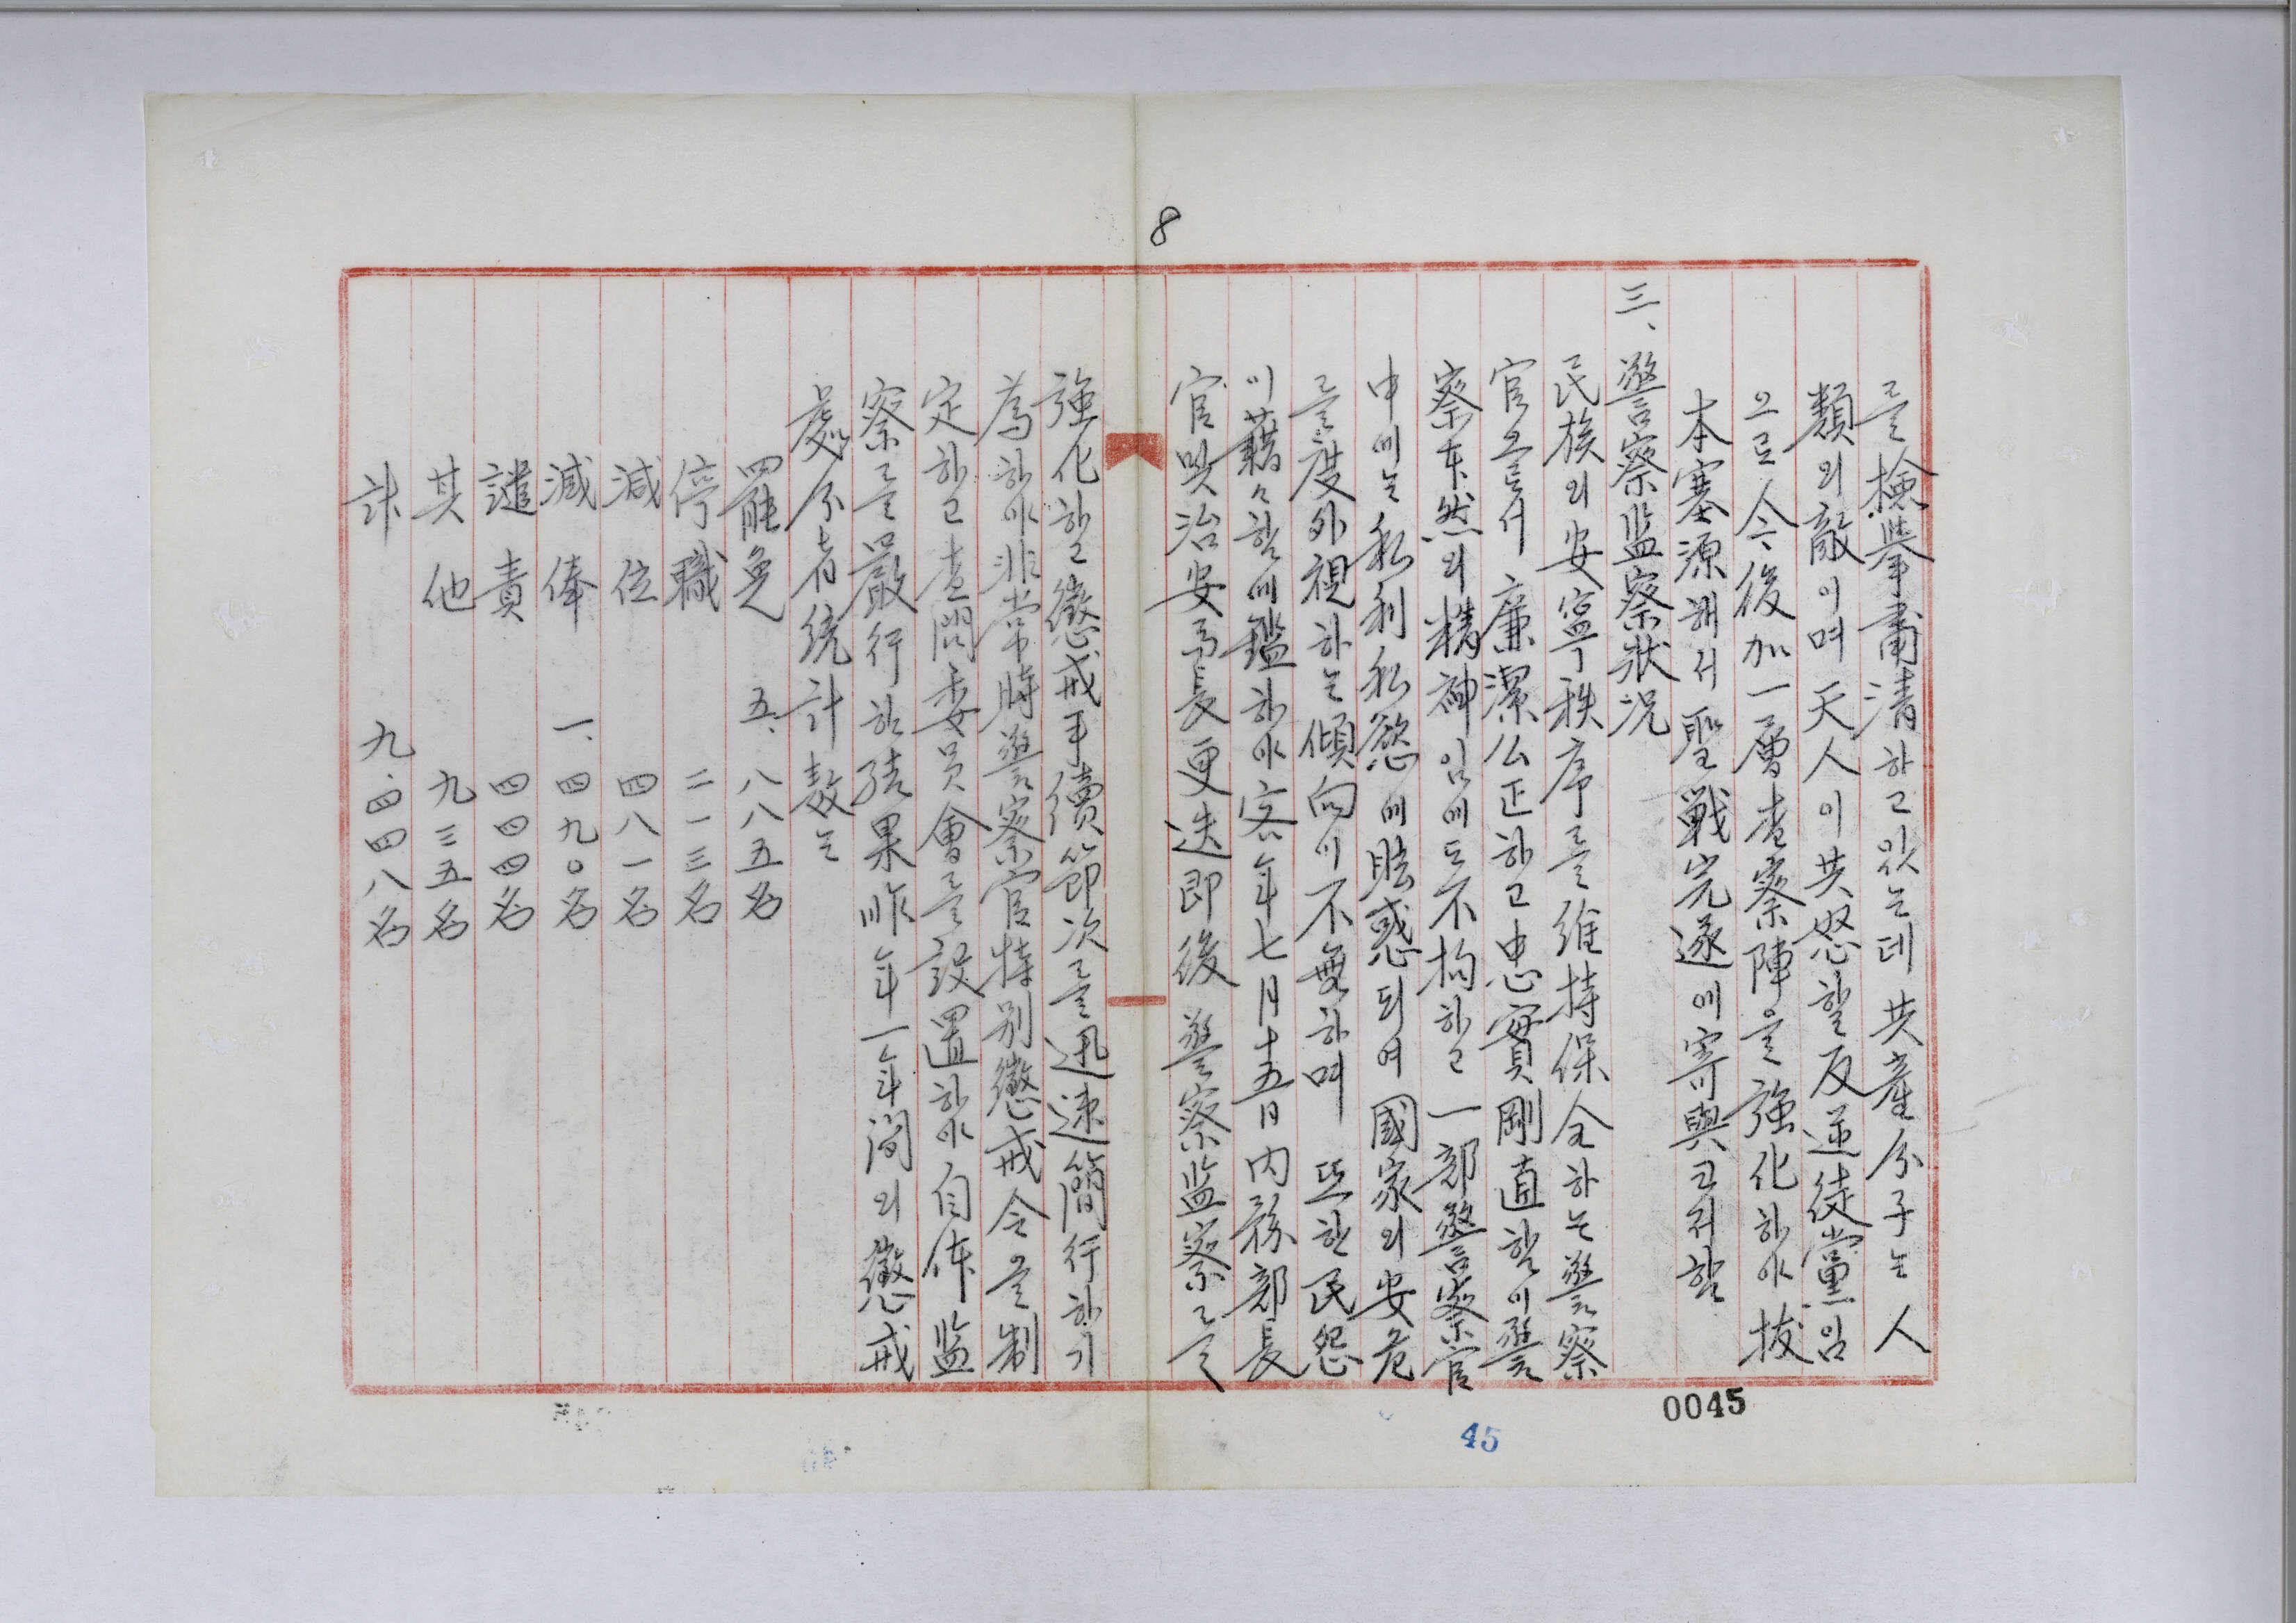 8
를 檢擧肅清하고있는데 共産分子는 人
類의 敵이며 天人이 共怒할 反逆徒黨임
으로 今後 加一層 査察陣을 強化하야 拔
本塞源해서 聖戰完遂에 寄與코저함
三、警察監察狀況
民族의 安寧秩序를 維持保全하는 警察
官으로서 廉潔公正하고 忠實剛直함이 警
察本然의 精神임에도 不拘하고 一部警察官
中에는 私利私慾에 眩惑되여 國家의 安危
를 度外視하는 傾向이 不無하며 또한 民怨
이 藉々함에 鑑하야 客年七月十五日 內務部長
官 및 治安局長更迭即後 警察監察를
強化하고 懲戒手續節次를 迅速簡行하기
為하야 非常時警察官特別懲戒令을 制
定하고 査問委員會를 設置하야 自体監
察를 嚴行한 結果 昨年一年間의 懲戒
處分者統計數는
罷免 五、八八五名
停職 二一三名
減位 四八一名
減俸 一、四九〇名
譴責 四四四名
其他 九三五名
計 九、四四八名
0045
45